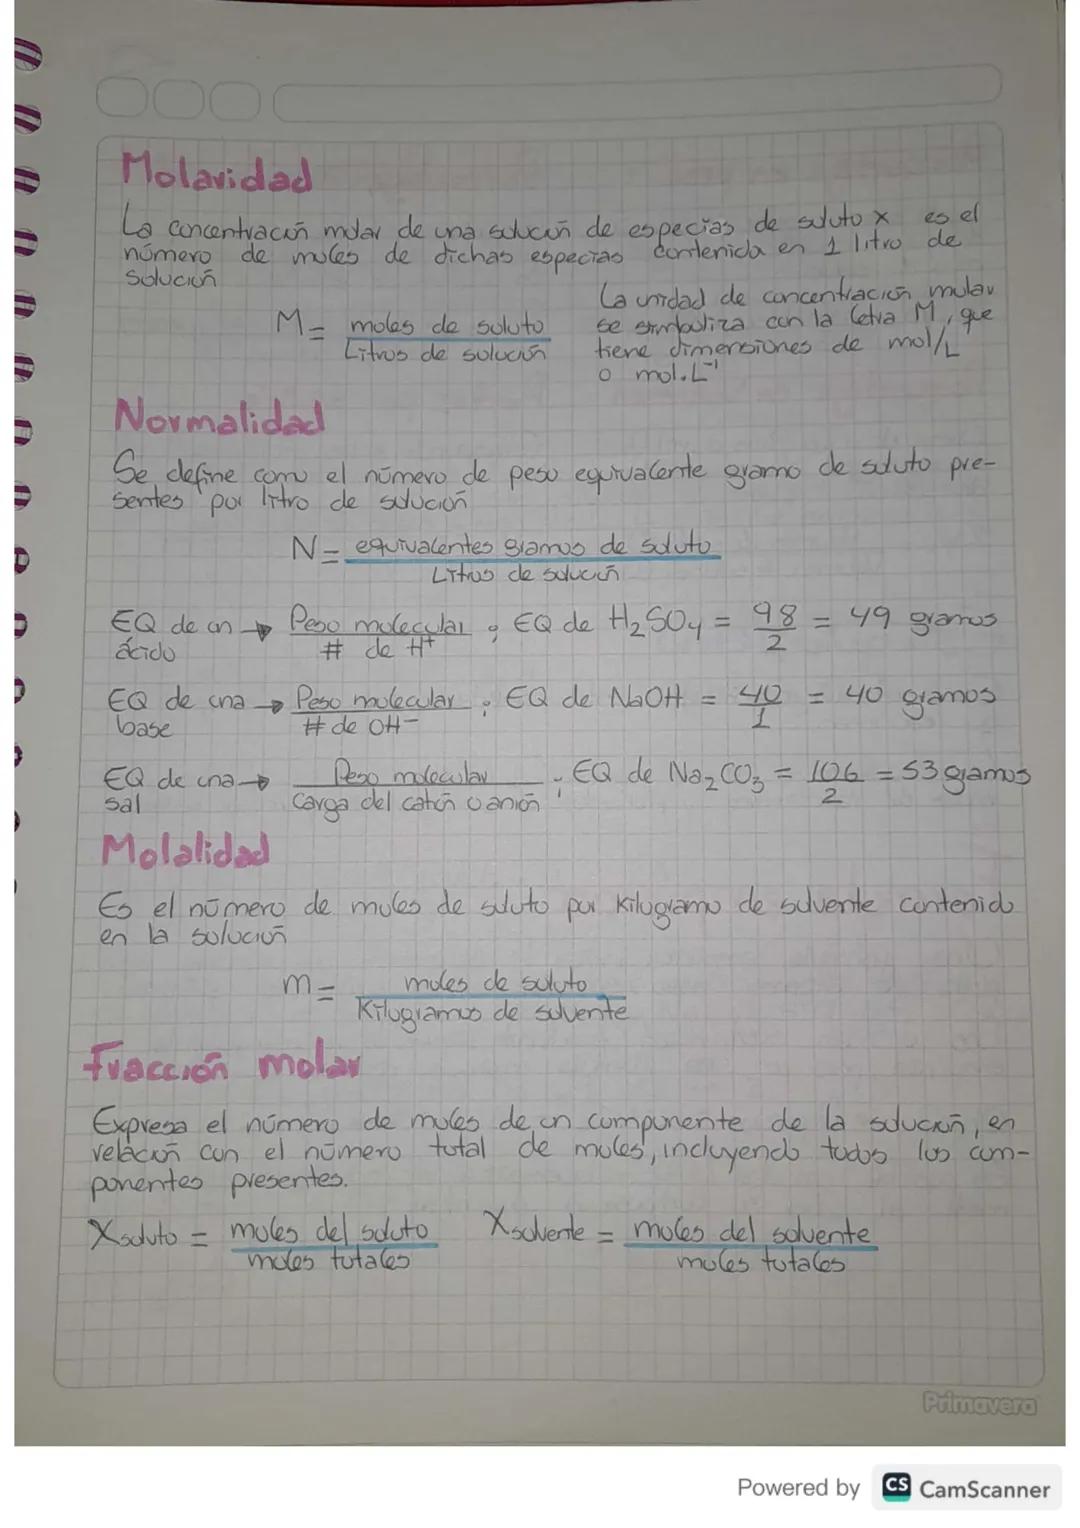 Molaridad
La concentración molar de una solución de especias de soluto x es el
número de moles de dichas especias contenida en 1 litro de
solución
La unidad de concentración molar
M = moles de soluto
Litros de solución
se simboliza con la letra M, que
tiene dimensiones de mol/L
o mol.L⁻¹
Normalidad
Se define como el número de peso equivalente gramo de soluto pre-
sentes por litro de solución
N = equivalentes gramos de soluto
Litros de solución
EQ de un → Peso molecular ; EQ de H₂SO₄ = 98 = 49 gramos
ácido # de H⁺ 2
EQ de una → Peso molecular ; EQ de NaOH = 40 = 40 gramos
base # de OH⁻ 1
EQ de una → Peso molecular ; EQ de Na₂CO₃ = 106 = 53 gramos
sal Carga del catión o anión 2
Molalidad
Es el número de moles de soluto por Kilogramo de solvente contenido
en la solución
m = moles de soluto
Kilogramos de solvente
Fracción molar
Expresa el número de moles de un componente de la solución, en
relación con el número total de moles, incluyendo todos los com-
ponentes presentes.
Xsoluto = moles del soluto Xsolvente = moles del solvente
moles totales moles totales
Primavera
Powered by CS CamScanner